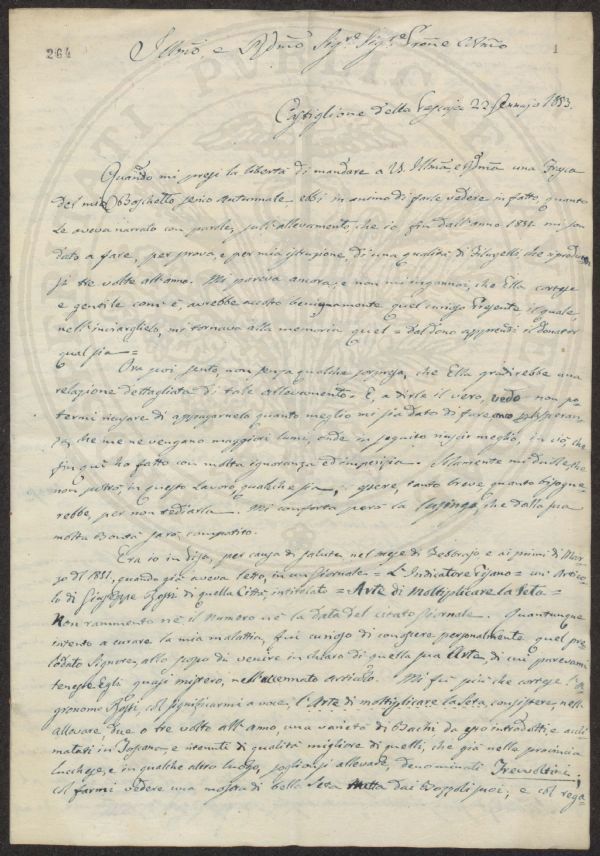 264
1
Illmo e Rdmo Sigre Sige Prone Colmo
Castiglione della Pescaja 22 Gennajo 1833.
Quando mi presi la libertà di mandare a VS. Illma e Rdma una
del mio Boschetto, ebbi in animo di farle vedere in fatto, quanto
Le aveva narrato con parole, sull'allevamento, che io, fin dall'anno 1831. mi son
dato a fare, per prova, e per mia istruzione, di una qualità di Filugelli che
si tre volte all'anno. Mi pareva ancora, e non mi ingannai, che Ella cortese
e gentile com'è, avrebbe accolto benignamente quel Presente il quale,
nell'inviarglielo, mi tornava alla memoria quel = Dal dono apprendi il donator
qual sia =
Ora poi sento, non senza qualche sorpresa, che Ella gradirebbe una
relazione dettagliata di tale allevamento. E, a dirle il vero, vedo non po
termi ricusare di appagarnela quanto meglio mi sia dato di fare
za, che me ne vengano maggiori lumi, onde in seguito riuscir meglio, in ciò che
fin quì ho fatto con molta ignoranza ed imperizia. Solamente mi duole che
non potrò, in questo Lavoro, qualche sia, essere, tanto breve, quanto bisogne-
rebbe, per non tediarla. Mi conforta però la lusinga, che dalla sua
molta Bontà sarò compatito.
Era io in Pisa, per causa di salute, nel mese di Febbrajo e ai primi di Mar-
zo del 1831, quando già aveva letto, in un Giornale = L'Indicatore Pisano = un Artico-
lo di Giuseppe Rossi di quella Città, intitolato = Arte di moltiplicare la Seta =
Non rammento nè il Numero nè la data del citato Giornale. Quantunque
intento a curare la mia malattia, fui curioso di conoscere personalmente quel pre
lodato Signore, allo scopo di venire in chiaro di quella sua Arte, di cui parevami
tenesse Egli quasi mistero, nell'accennato articolo. Mi fu più che cortese l'A
gronomo Rossi, col significarmi a voce, l'Arte di moltiplicare la Seta, consistere, nell'
allevare, due o tre volte all'anno, una varietà di Bachi da esso introdotti, e acli
matati in Toscana, e ritenuti di qualità migliore di quelli, che già nella provincia
Lucchese, e in qualche altro luogo, soglionsi allevare, denominati Trevoltini;
col farmi vedere una mostra di bella Seta tratta dai Bozzoli suoi; e col rega=